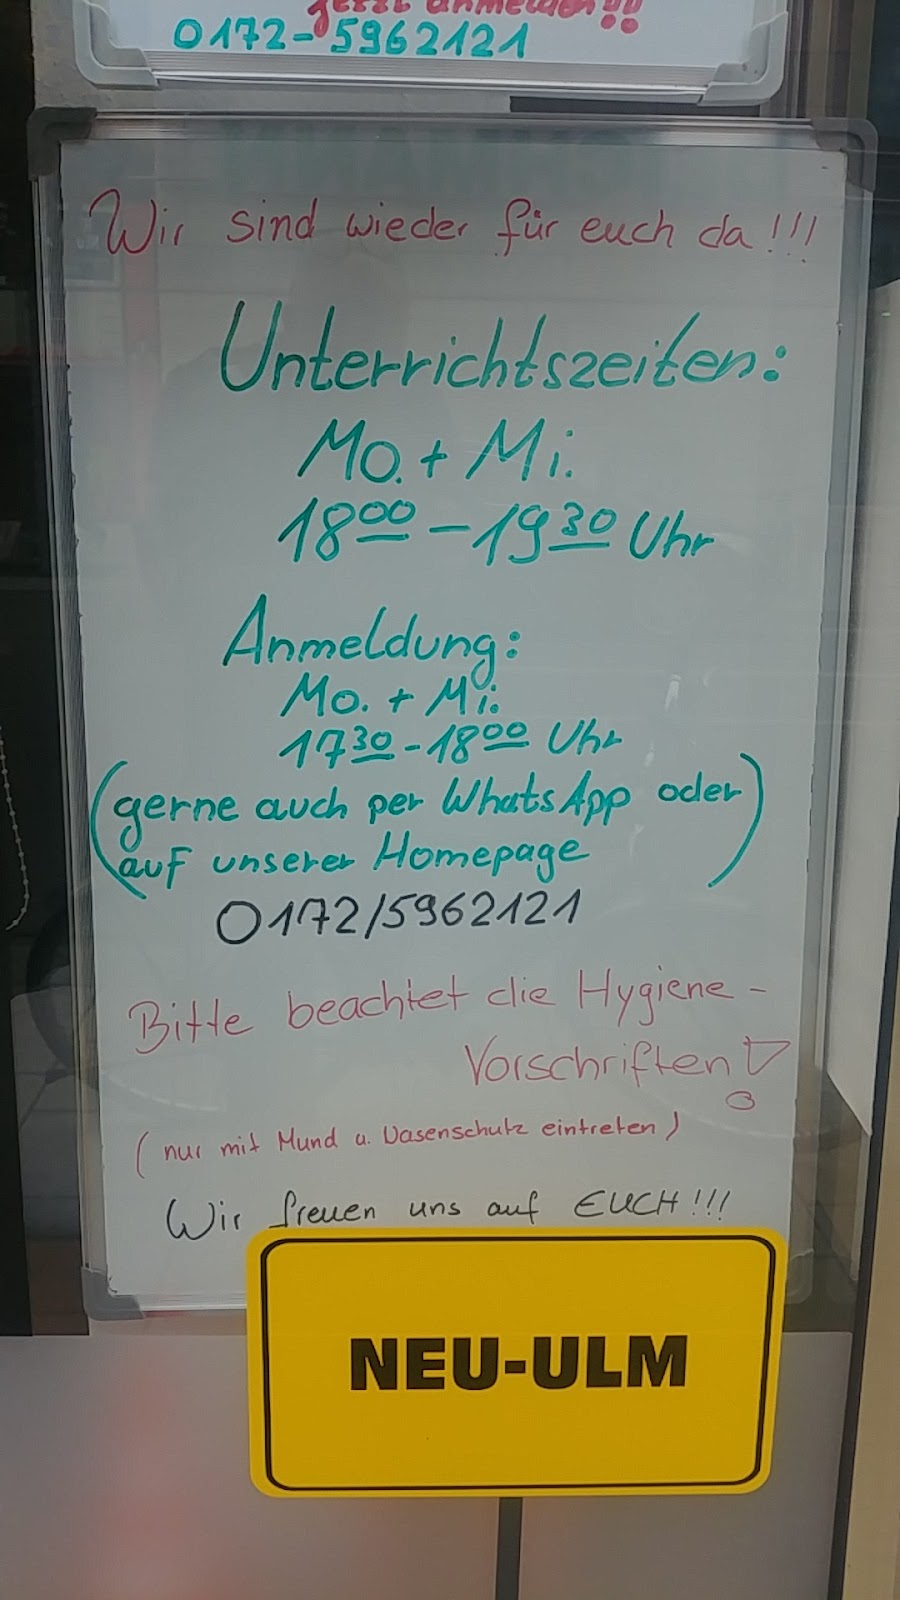 jetzt anmelden!!
0172-5962121
Wir sind wieder für euch da!!!
Unterrichtszeiten:
Mo. + Mi.
1800 - 1930 Uhr
Anmeldung:
Mo. + Mi.
1730 - 1800 Uhr
(gerne auch per WhatsApp oder
auf unserer Homepage)
0172/5962121
Bitte beachtet die Hygiene-
Vorschriften!
(nur mit Mund u. Nasenschutz eintreten)
Wir freuen uns auf EUCH!!!
NEU-ULM